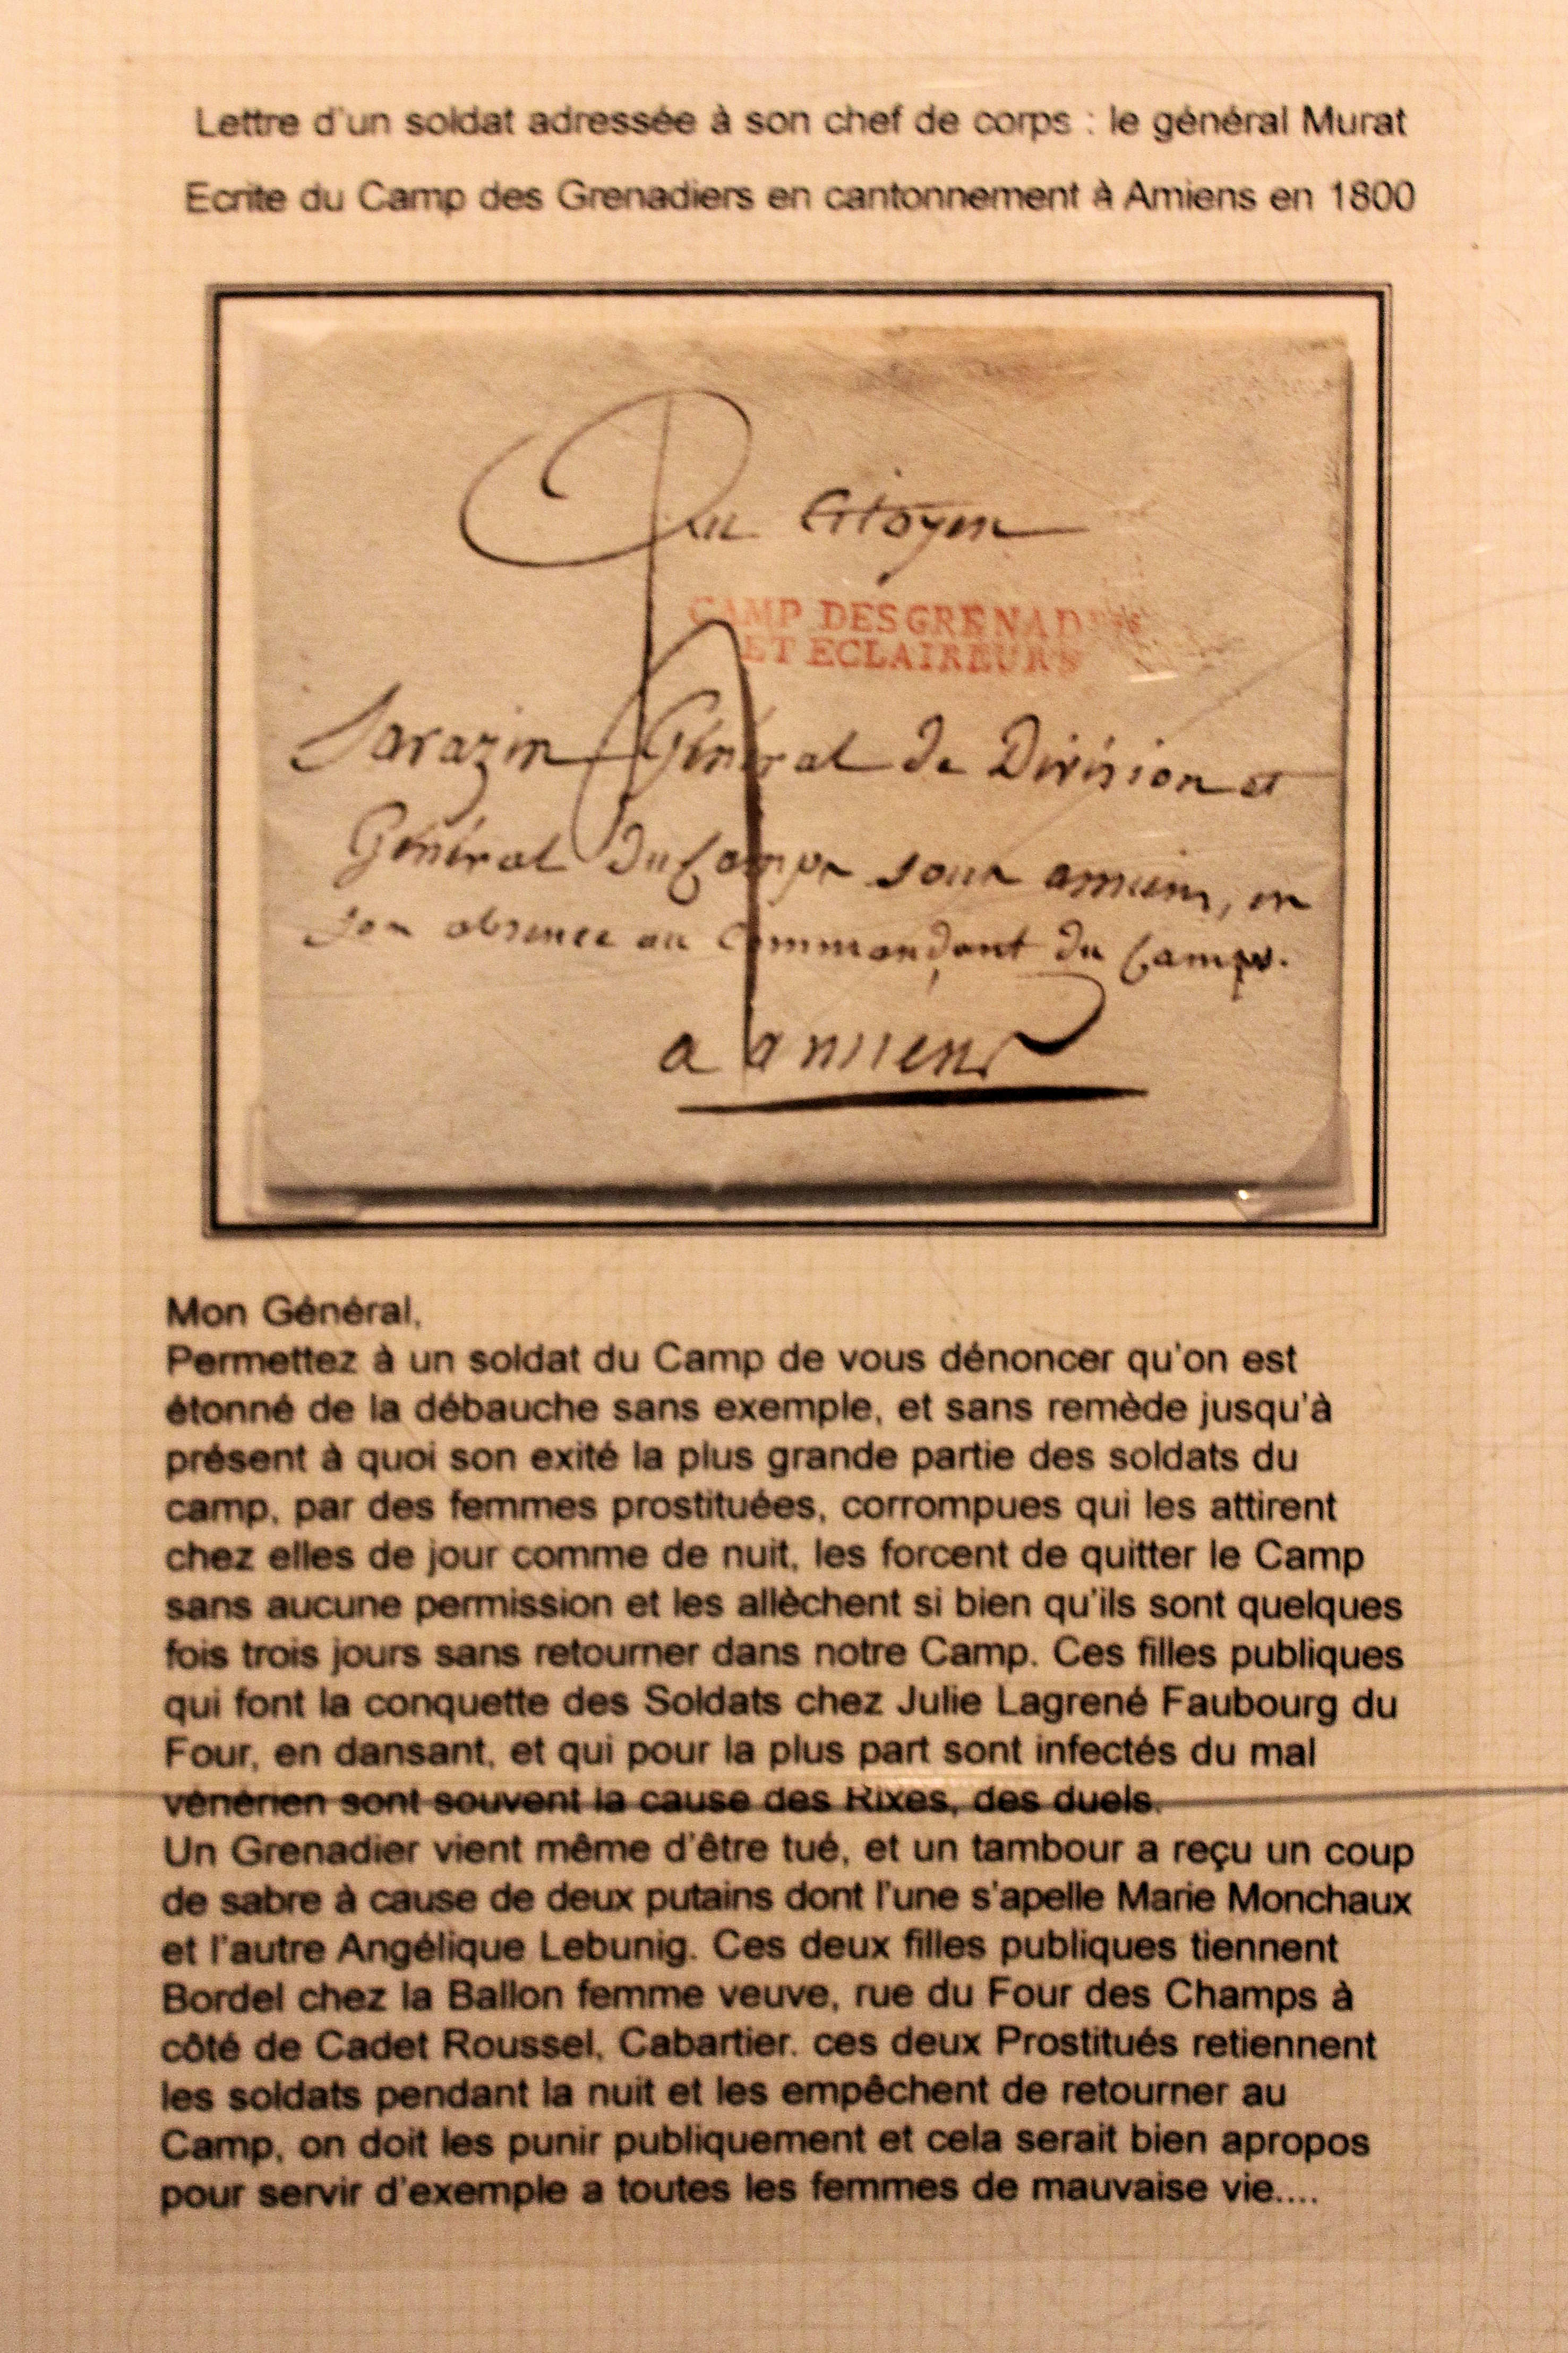 Lettre d'un soldat adressée à son chef de corps : le général Murat
Ecrite du Camp des Grenadiers en cantonnement à Amiens en 1800
Au Citoyen
CAMP DES GRENAD
ET ECLAIREURS
Sarazin Général de Division et
Général du Campe sous amiens, en
Son absence au Commandant du Campe.
a amiens
Mon Général,
Permettez à un soldat du Camp de vous dénoncer qu'on est
étonné de la débauche sans exemple, et sans remède jusqu'à
présent à quoi son exité la plus grande partie des soldats du
camp, par des femmes prostituées, corrompues qui les attirent
chez elles de jour comme de nuit, les forcent de quitter le Camp
sans aucune permission et les allèchent si bien qu'ils sont quelques
fois trois jours sans retourner dans notre Camp. Ces filles publiques
qui font la conquette des Soldats chez Julie Lagrené Faubourg du
Four, en dansant, et qui pour la plus part sont infectés du mal
vénérien sont souvent la cause des Rixes, des duels.
Un Grenadier vient même d'être tué, et un tambour a reçu un coup
de sabre à cause de deux putains dont l'une s'apelle Marie Monchaux
et l'autre Angélique Lebunig. Ces deux filles publiques tiennent
Bordel chez la Ballon femme veuve, rue du Four des Champs à
côté de Cadet Roussel, Cabartier. ces deux Prostitués retiennent
les soldats pendant la nuit et les empêchent de retourner au
Camp, on doit les punir publiquement et cela serait bien apropos
pour servir d'exemple a toutes les femmes de mauvaise vie....